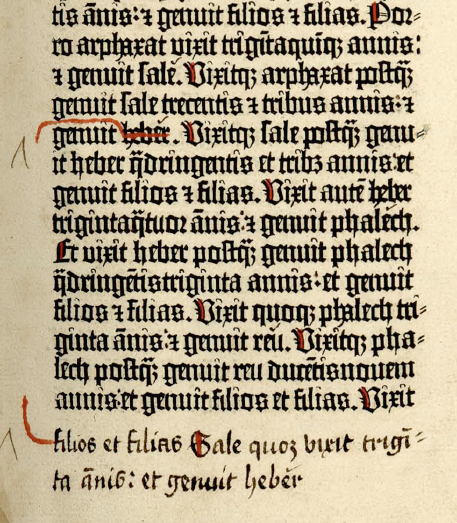 tis ānis: ⁊ genuit filios ⁊ filias. Por-
ro arphaxat vixit trigītaquīqꝫ annis:
⁊ genuit sale. Vixitqꝫ arphaxat postq̄ꝫ
genuit sale trecentis ⁊ tribus annis: ⁊
genuit heber. Vixitqꝫ sale postq̄ꝫ genu-
it heber q̄dringentis et tribꝫ annis: et
genuit filios ⁊ filias. Vixit autē heber
trigintaq̄tuor ānis: ⁊ genuit phalech.
Et vixit heber postq̄ꝫ genuit phalech
q̄dringētis triginta annis: et genuit
filios ⁊ filias. Vixit quoqꝫ phalech tri-
ginta ānis: ⁊ genuit reu. Vixitqꝫ pha-
lech postq̄ꝫ genuit reu ducētis novem
annis: et genuit filios et filias. Vixit
filios et filias Sale quoꝫ vixit trigī-
ta ānis: et genuit heber